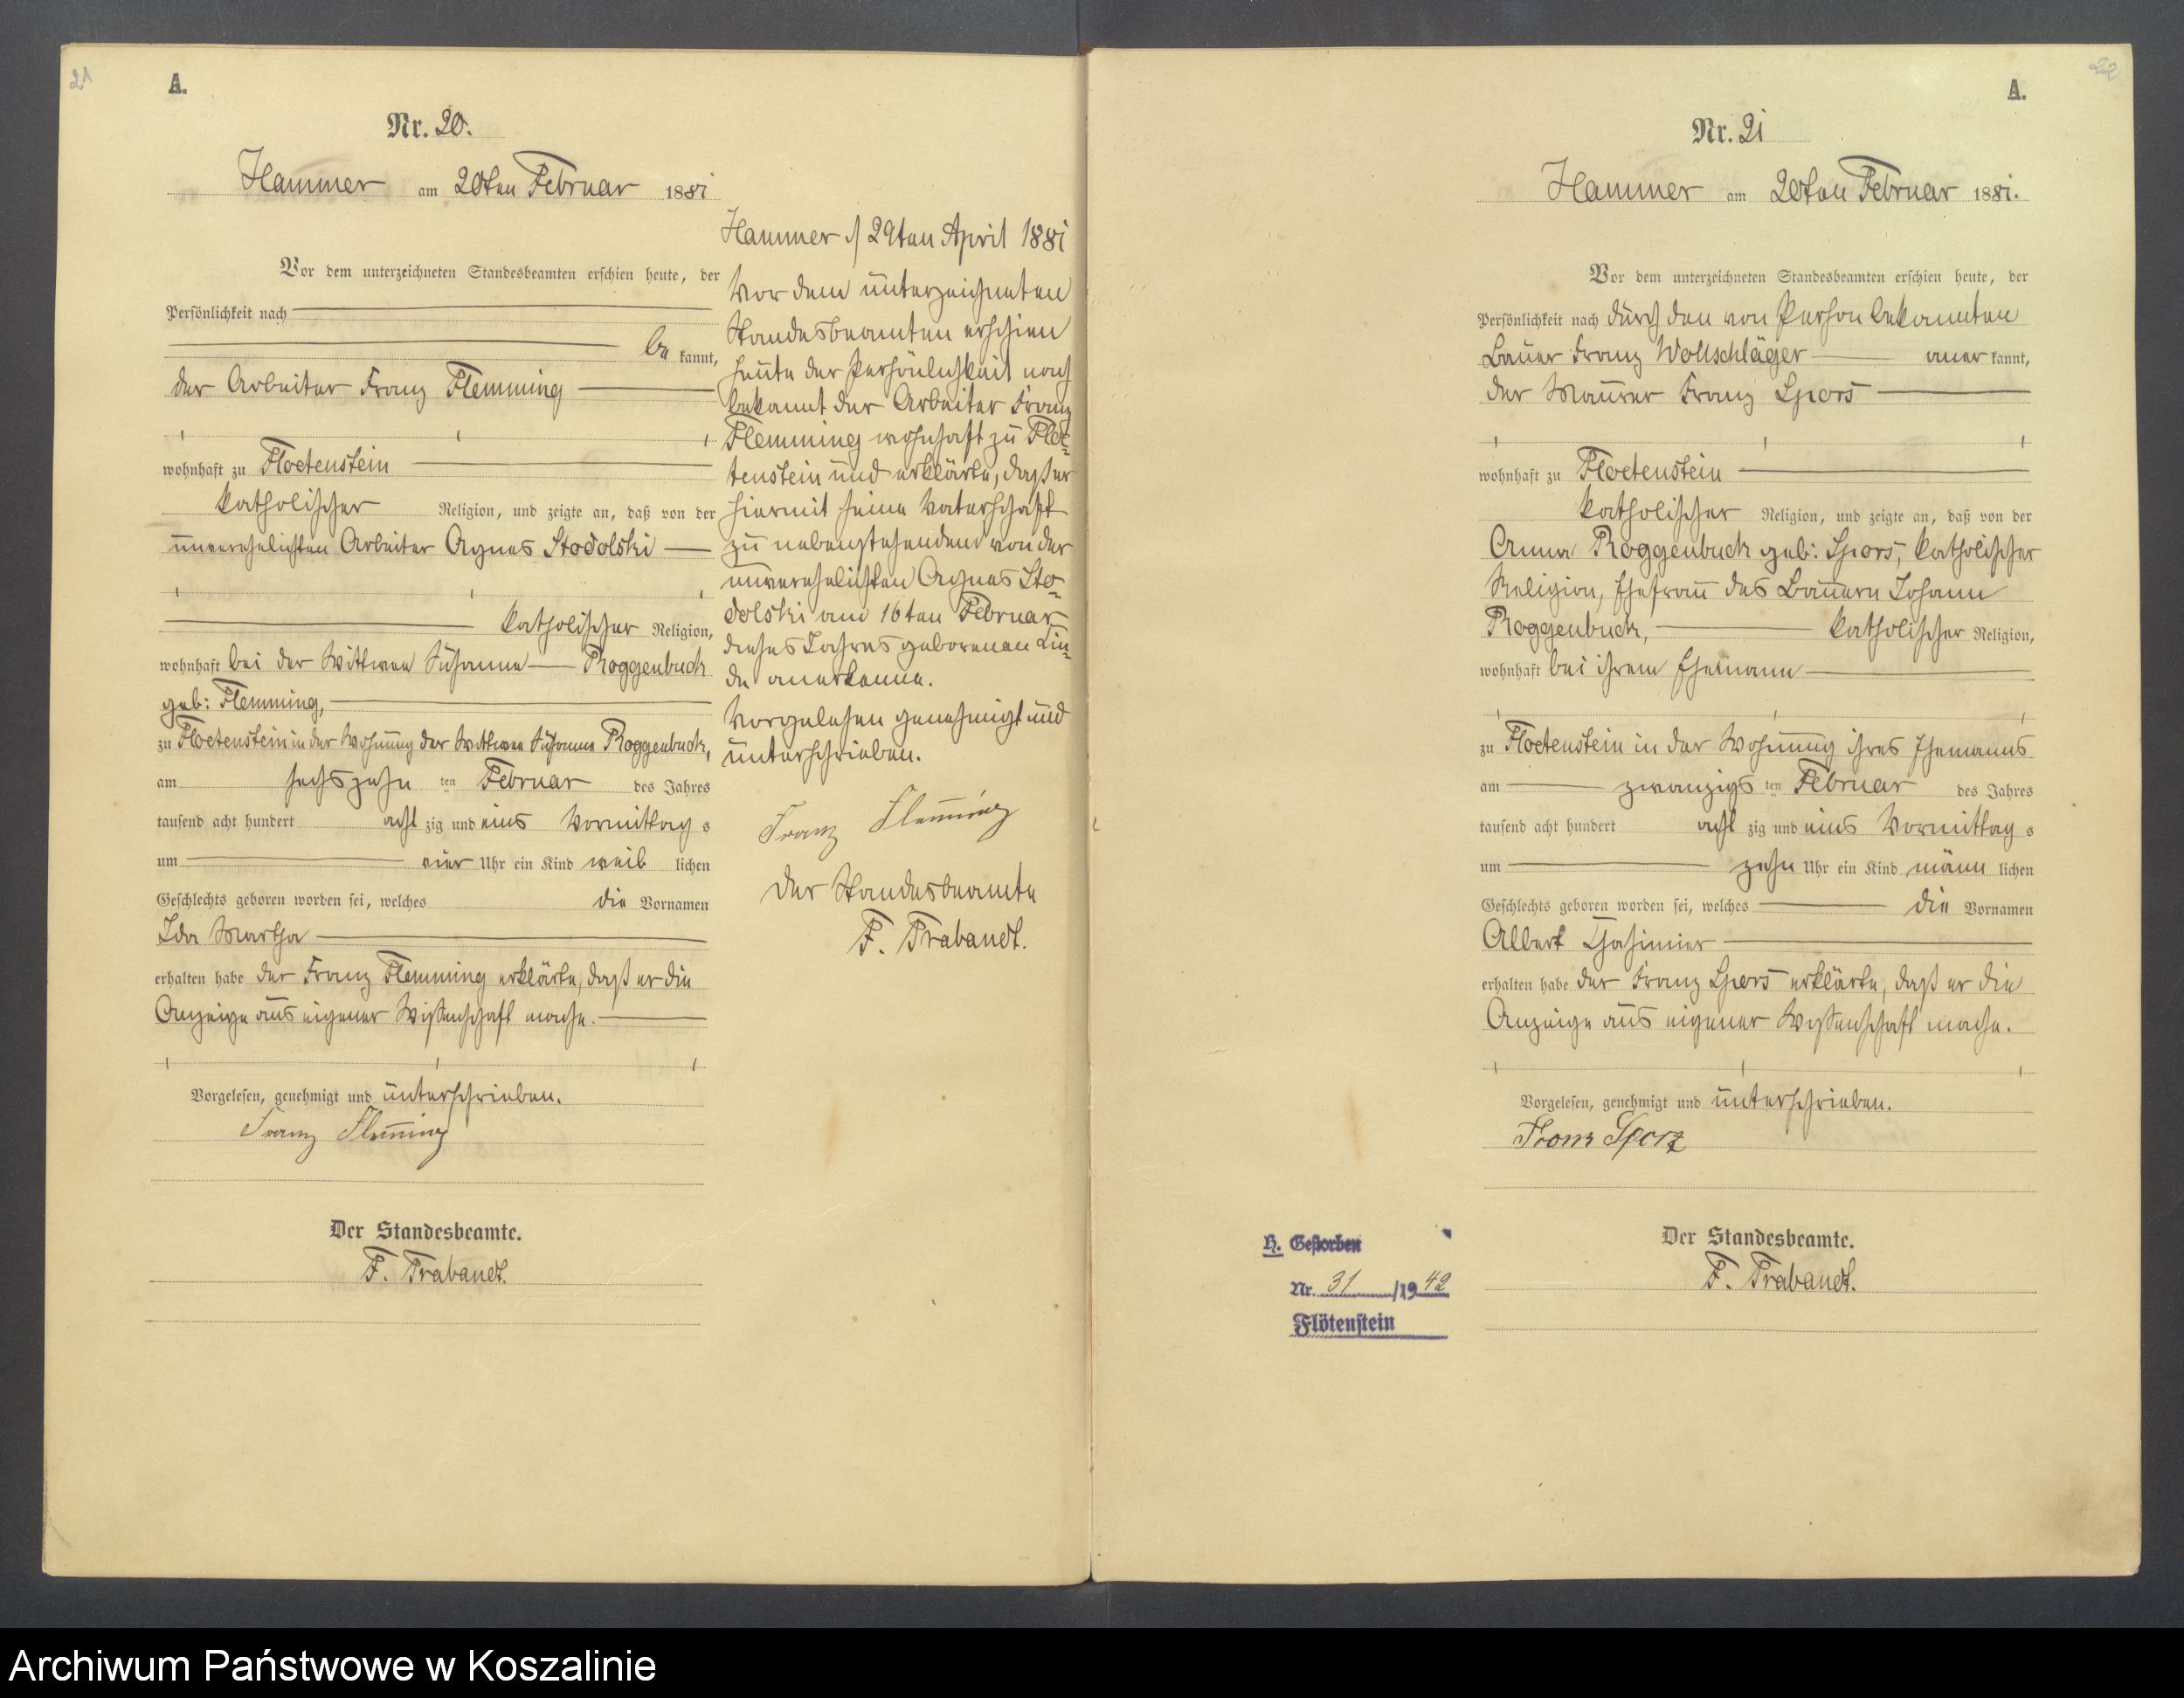 21
A.
Nr. 20.
Hammer am 20ten Februar 1881
Vor dem unterzeichneten Standesbeamten erschien heute, der
Persönlichkeit nach
be kannt,
der Arbeiter Franz Flemming
wohnhaft zu Floetenstein
katholischer Religion, und zeigte an, daß von der
unverehelichten Arbeiter Agnes Stodolski
katholischer Religion,
wohnhaft bei der Wittwe Susanna Roggenbuck
geb: Flemming,
zu Floetenstein in der Wohnung der Wittwe Susanna Roggenbuck,
am sechszehn ten Februar des Jahres
tausend acht hundert acht zig und eins Vormittag s
um vier Uhr ein Kind weib lichen
Geschlechts geboren worden sei, welches die Vornamen
Ida Martha
erhalten habe der Franz Flemming erklärte, daß er die
Anzeige aus eigener Wißenschaft mache.
Vorgelesen, genehmigt und unterschrieben.
Franz Flemming
Der Standesbeamte.
F. Trabandt.
Hammer d 29ten April 1881
Vor dem unterzeichneten
Standesbeamten erschien
heute der Persönlichkeit nach
bekannt der Arbeiter Franz
Flemming wohnhaft zu Floe=
tenstein und erklärte, daß er
hiermit seine Vaterschaft
zu nebenstehendem von der
unverehelichten Agnes Sto=
dolski am 16ten Februar
dieses Jahres geborenen Kin=
de anerkenne.
Vorgelesen genehmigt und
unterschrieben.
Franz Flemming
Der Standesbeamte
F. Trabandt.
22
A.
Nr. 21
Hammer am 20ten Februar 1881.
Vor dem unterzeichneten Standesbeamten erschien heute, der
Persönlichkeit nach durch den von Person bekannten
Bauer Franz Wollschläger aner kannt,
der Maurer Franz Spors
wohnhaft zu Floetenstein
katholischer Religion, und zeigte an, daß von der
Anna Roggenbuck geb: Spors, katholischer
Religion, Ehefrau des Bauern Johann
Roggenbuck, katholischer Religion,
wohnhaft bei ihrem Ehemann
zu Floetenstein in der Wohnung ihres Ehemanns
am zwanzigs ten Februar des Jahres
tausend acht hundert acht zig und eins Vormittag s
um zehn Uhr ein Kind männ lichen
Geschlechts geboren worden sei, welches die Vornamen
Albert Casimier
erhalten habe der Franz Spors erklärte, daß er die
Anzeige aus eigener Wißenschaft mache.
Vorgelesen, genehmigt und unterschrieben.
Franz Sporz
Der Standesbeamte.
F. Trabandt.
H. Gestorben
Nr. 31 /1942
Flötenstein
Archiwum Państwowe w Koszalinie